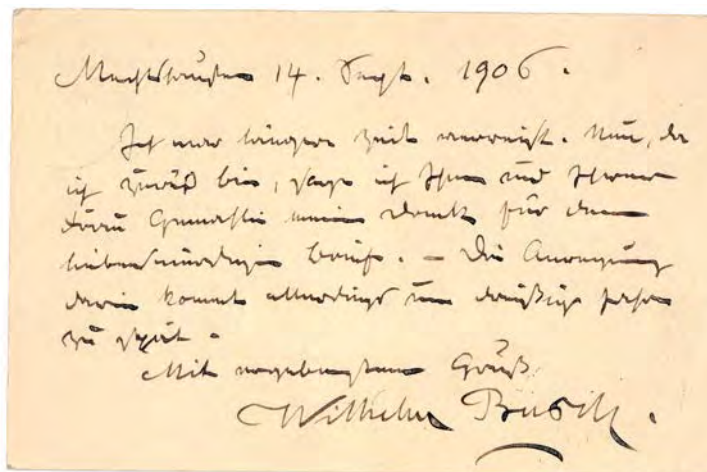 Mechtshausen 14. Sept. 1906.
Ich war längere Zeit verreist. Nun, da
ich zurück bin, sage ich Ihnen und Ihrer
Frau Gemahlin meinen Dank für den
liebenswürdigen Brief. – Die Anregung
darin kommt allerdings um dreißig Jahre
zu spät.
Mit ergebenstem Gruß
Wilhelm Busch.